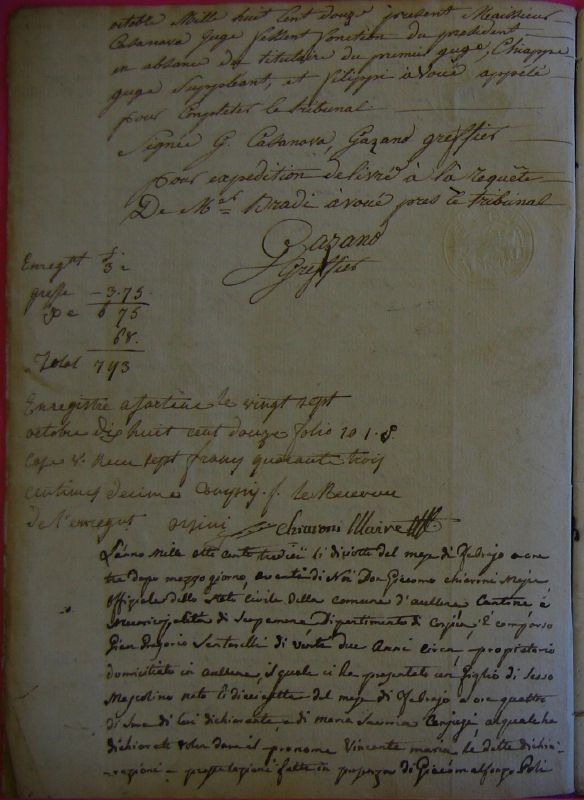 octobre Mille huit Cent douze presents Messieurs
Casanova Juge fesant fonction du president
en absence du titulaire du premier juge, Chiappe
juge Suppleant, et filippi avoué appelé
pour Completer le tribunal
Signée G. Casanova, Gazano greffier
pour expedition delivré à la requête
De Mar Bradi avoué pres le tribunal
Gazano
Greffier
Enregt 3
greffe 3.75
6 75
68.
Total 743
Enregistre a Sartène le vingt sept
octobre dix huit cent douze folio 101.
Case 8. Recu sept francs quarante trois
centimes decime Compris. f. le Receveur
de l'enregt orsini
Chiaroni Maire
L'anno Mille otto cento tredici li diciotto del mese di Febrajo a ore
tre dopo mezzo giorno, avanti di Noi Don Giacomo Chiaroni Maire
officiale dello Stato Civile della comune d'aullene Cantone e
Municipalità di Serra Dipartimento di Corsica, è comparso
Gian Gregorio Santarelli di vente due Anni circa proprietario
domiciliato in aullene, il quale ci ha presentato un figlio di Sesso
Mascolino nato li dieciesette del mese di Febrajo a ore quattro
di Sera di Lui dichiarante, e di maria Saveria Conjuge al quale ha
dichiarato voler dare il pronome Vincente maria, le dette dichia
-razioni e presentazioni fatte in presenza di Giacom' alfonzo Poli